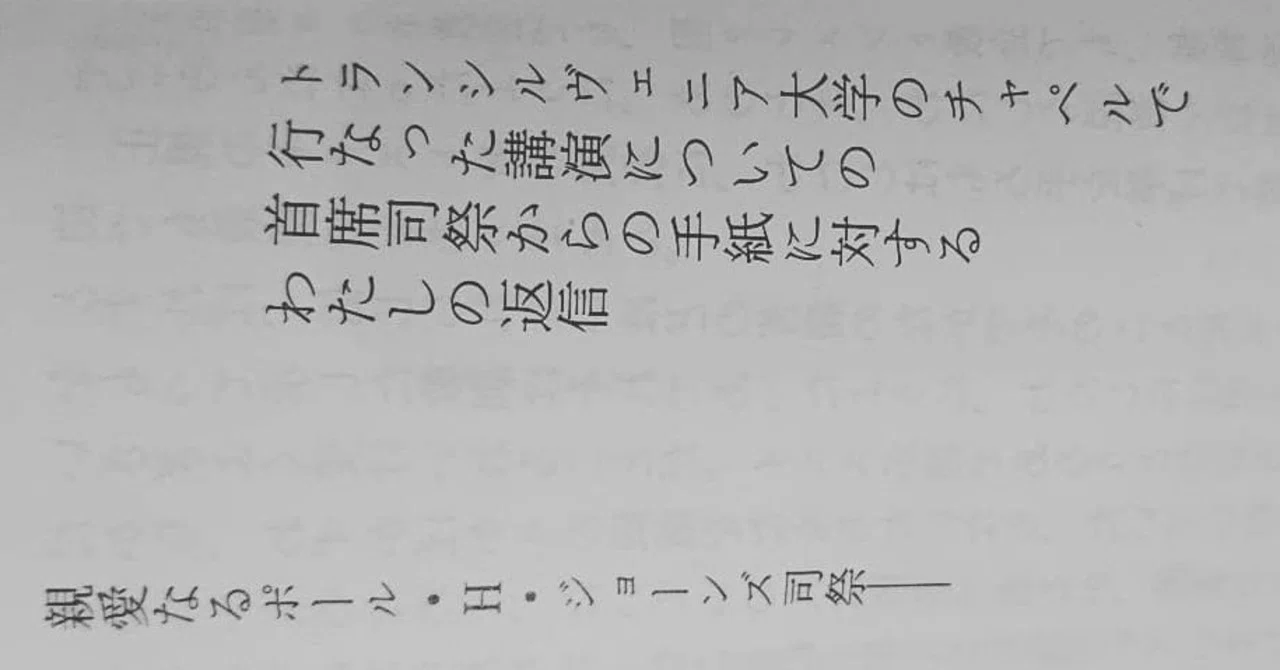 トランシルヴェニア大学のチャペルで
行なった講演についての
首席司祭からの手紙に対する
わたしの返信
親愛なるポール・H・ジョーンズ司祭――